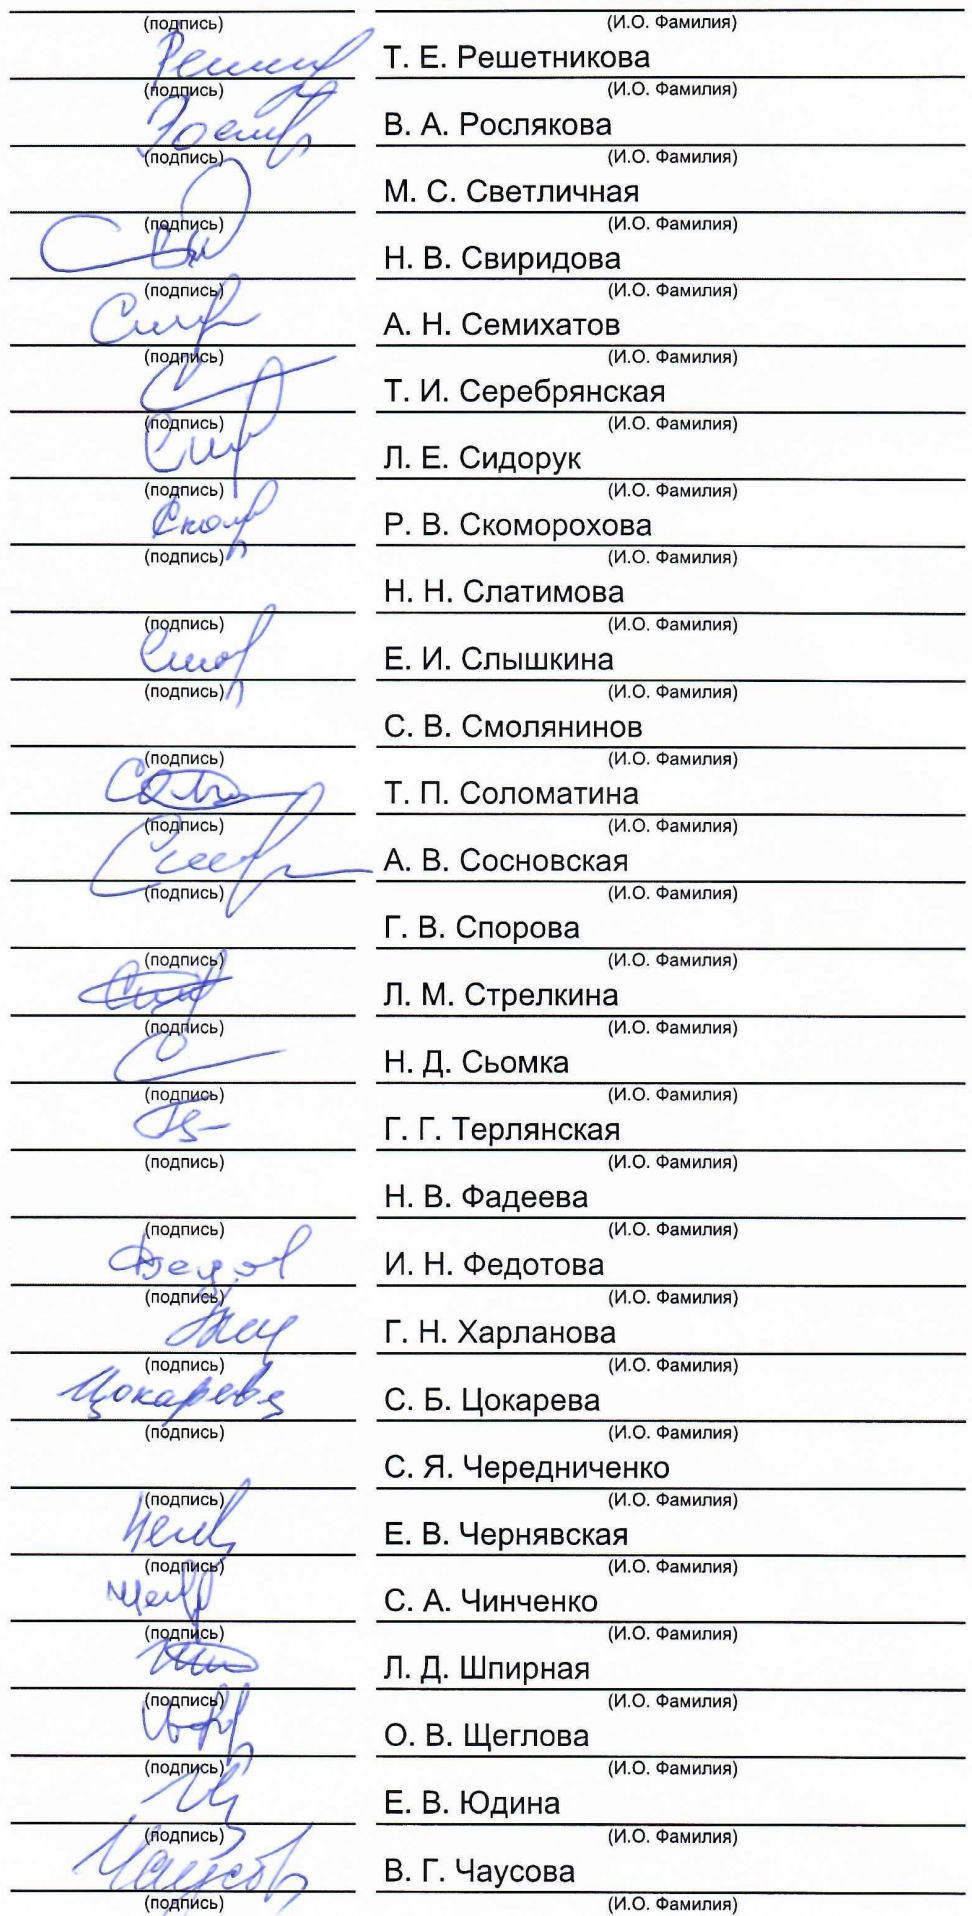 (подпись) (И.О. Фамилия)
Т. Е. Решетникова
(подпись) (И.О. Фамилия)
В. А. Рослякова
(подпись) (И.О. Фамилия)
М. С. Светличная
(подпись) (И.О. Фамилия)
Н. В. Свиридова
(подпись) (И.О. Фамилия)
А. Н. Семихатов
(подпись) (И.О. Фамилия)
Т. И. Серебрянская
(подпись) (И.О. Фамилия)
Л. Е. Сидорук
(подпись) (И.О. Фамилия)
Р. В. Скоморохова
(подпись) (И.О. Фамилия)
Н. Н. Слатимова
(подпись) (И.О. Фамилия)
Е. И. Слышкина
(подпись) (И.О. Фамилия)
С. В. Смолянинов
(подпись) (И.О. Фамилия)
Т. П. Соломатина
(подпись) (И.О. Фамилия)
А. В. Сосновская
(подпись) (И.О. Фамилия)
Г. В. Спорова
(подпись) (И.О. Фамилия)
Л. М. Стрелкина
(подпись) (И.О. Фамилия)
Н. Д. Сьомка
(подпись) (И.О. Фамилия)
Г. Г. Терлянская
(подпись) (И.О. Фамилия)
Н. В. Фадеева
(подпись) (И.О. Фамилия)
И. Н. Федотова
(подпись) (И.О. Фамилия)
Г. Н. Харланова
(подпись) (И.О. Фамилия)
Цокарева С. Б. Цокарева
(подпись) (И.О. Фамилия)
С. Я. Чередниченко
(подпись) (И.О. Фамилия)
Е. В. Чернявская
(подпись) (И.О. Фамилия)
С. А. Чинченко
(подпись) (И.О. Фамилия)
Л. Д. Шпирная
(подпись) (И.О. Фамилия)
О. В. Щеглова
(подпись) (И.О. Фамилия)
Е. В. Юдина
(подпись) (И.О. Фамилия)
В. Г. Чаусова
(подпись) (И.О. Фамилия)